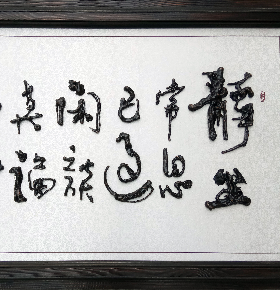 靜坐
常思
己過
闲談
莫論